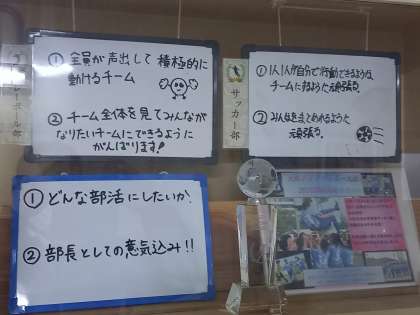 ① 全員が声出して積極的に
動けるチーム
② チーム全体を見てみんなが
なりたいチームにできるように
がんばります!
レーボール部
サッカー部
① 1人1人が自分で行動できるような
チームになるよう頑張る。
② みんなをまとめれるように
頑張る。
① どんな部活にしたいか?
② 部長としての意気込み!!